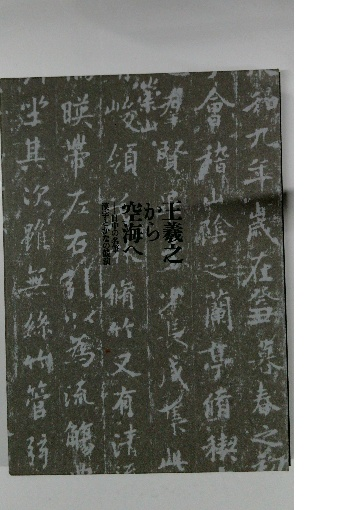 王羲之
から
空海へ
日中の名筆
漢字とかなの競演
和九年歳在癸丑暮春之初
會稽山陰之蘭亭脩禊
羣賢 少長咸集此
崇山
峻領 脩竹又有清流
暎帶左右引以為流觴
坐其次雖無絲竹管弦